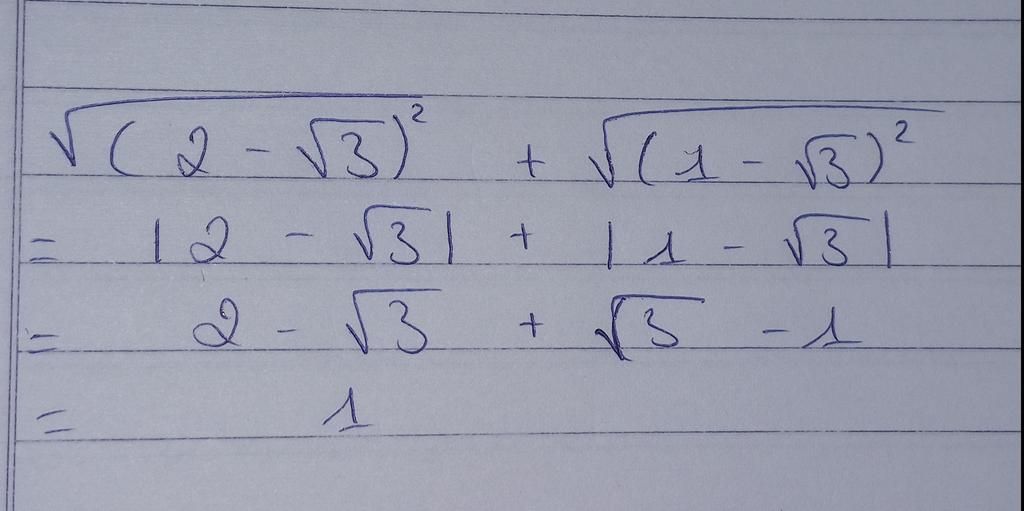 √(2 - √3)² + √(1 - √3)²
= |2 - √3| + |1 - √3|
= 2 - √3 + √3 - 1
= 1